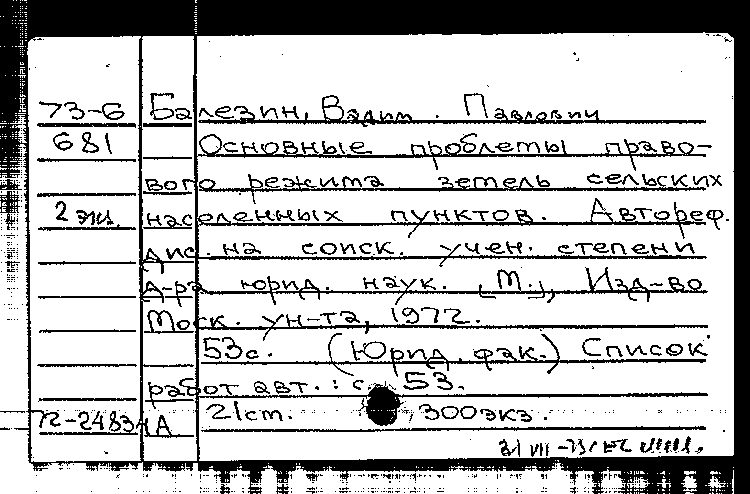 73-6 Балезин, Вадим Павлович
681 Основные проблемы право-
вого режима земель сельских
2 экз. населенных пунктов. Автореф.
дис. на соиск. учен. степени
д-ра юрид. наук. [М.], Изд-во
Моск. ун-та, 1972.
53с. (Юрид. фак.) Список
работ авт.: с. 53.
72-24834А 21cm. 300экз.